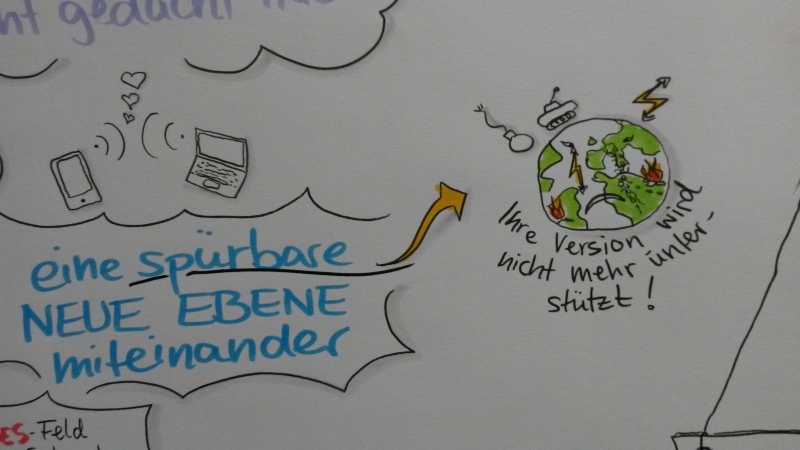 gedacht
eine spürbare
NEUE EBENE
miteinander
Ihre Version wird
nicht mehr unter-
stützt!
ES-Feld